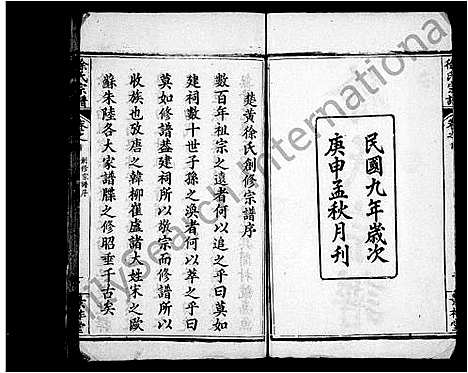 民國九年歲次
庚申孟秋月刊
楚黃徐氏創修宗譜序
數百年祖宗之遠者何以追之乎曰莫如
建祠數十世子孫之渙者何以萃之乎曰
莫如修譜葢建祠所以敬宗而修譜所以
收族也攷唐之韓柳崔盧諸大姓宋之歐
蘇朱陸各大家譜牒之修昭垂千古矣
徐氏宗譜
創修宗譜序
MySearch International